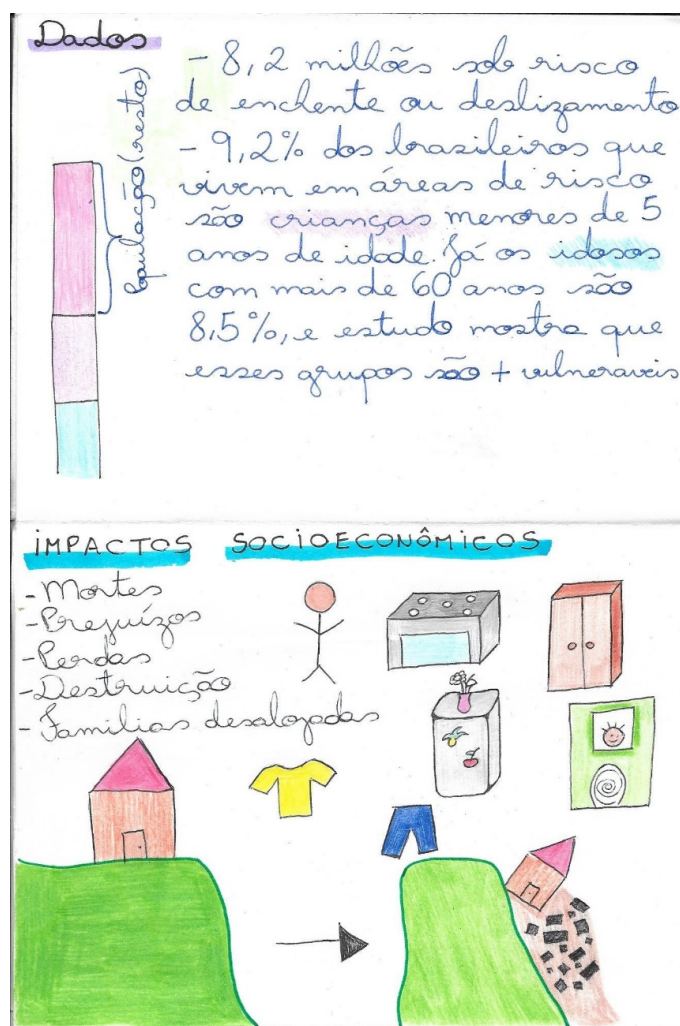 Dados
População (resto)
- 8,2 milhões sob risco
de enchente ou deslizamento
- 9,2% dos brasileiros que
vivem em áreas de risco
são crianças menores de 5
anos de idade. Já os idosos
com mais de 60 anos são
8,5%, e estudo mostra que
esses grupos são + vulneraveis
IMPACTOS SOCIOECONÔMICOS
- Mortes
- Prejuízos
- Perdas
- Destruição
- Familias desalojadas